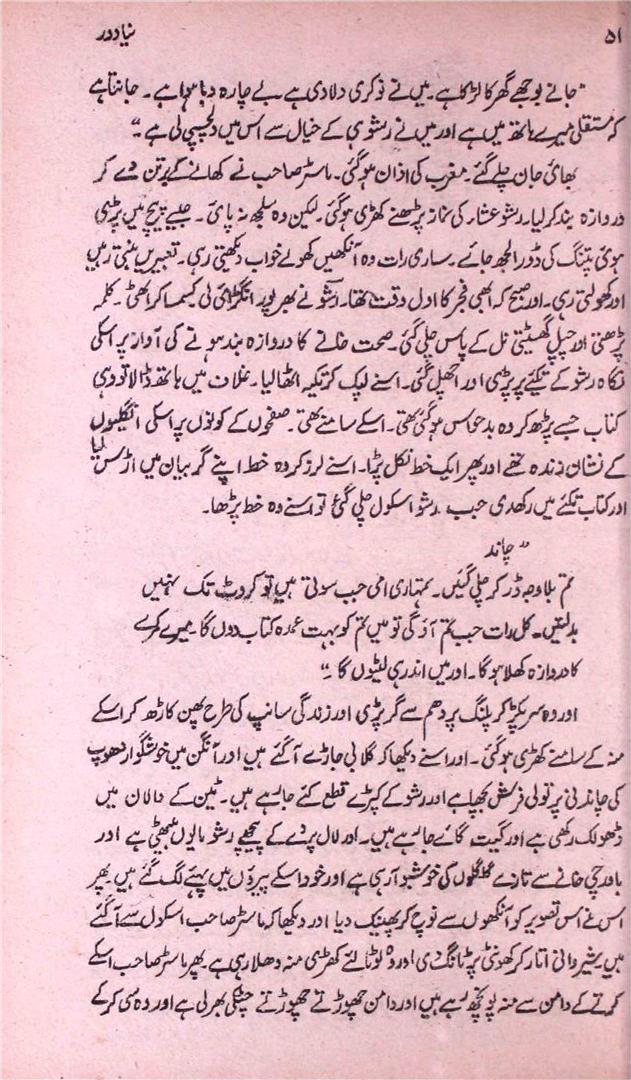 ۵۱ نیا دور
"جانے بوجھے گھر کا لڑکا ہے۔ میں نے نوکری دلا دی ہے بے چارہ دبا ہوا ہے۔ جانتا ہے
کہ مستقلی میرے ہاتھ میں ہے اور میں نے رشو ہی کے خیال سے اس میں دلچسپی لی ہے۔"
بھائی جان چلے گئے۔ مغرب کی اذان ہو گئی۔ ماسٹر صاحب نے کھانے کے برتن دے کر
دروازہ بند کر لیا۔ رشو عشاء کی نماز پڑھنے کھڑی ہو گئی۔ لیکن وہ سلجھ نہ پائی۔ جیسے پیچ میں پڑی
ہوئی پتنگ کی ڈور الجھ جائے۔ ساری رات وہ آنکھیں کھولے خواب دیکھتی رہی۔ تعبیریں بنتی رہیں
اور کھولتی رہی۔ اور صبح کہ ابھی فجر کا اول وقت تھا۔ رشو نے بھرپور انگڑائی لی کسمسا کر اٹھی۔ کلمہ
پڑھتی اور چپل گھسیٹتی نل کے پاس چلی گئی۔ صحت خانے کا دروازہ بند ہونے کی آواز پر اسکی
نگاہ رشو کے تکیے پر پڑی اور اچھل گئی۔ اسنے لپک کر تکیہ اٹھا لیا۔ غلاف میں ہاتھ ڈالا تو وہی
کتاب جسے پڑھ کر وہ بدحواس ہو گئی تھی۔ اسکے سامنے تھی۔ صفحوں کے کونوں پر اسکی انگلیوں
کے نشان زندہ تھے اور پھر ایک خط نکل پڑا۔ اسنے لرز کر وہ خط اپنے گریبان میں اڑس لیا
اور کتاب تکئے میں رکھدی جب رشو اسکول چلی گئی تو اسنے وہ خط پڑھا۔
"چاند
تم بلاوجہ ڈر کر چلی گئیں۔ تمہاری امی جب سوتی ہیں تو کروٹ تک نہیں
بدلتیں۔ کل رات جب تم آؤ گی تو میں تم کو بہت عمدہ کتاب دوں گا۔ میرے کمرے
کا دروازہ کھلا ہوگا۔ اور میں اندر ہی لیٹوں گا۔"
اور وہ سر پکڑ کر پلنگ پر دھم سے گر پڑی اور زندگی سانپ کی طرح پھن کاڑھ کر اسکے
منہ کے سامنے کھڑی ہو گئی۔ اور اسنے دیکھا کہ گلابی جاڑے آگئے ہیں اور آنگن میں خوشگوار دھوپ
کی چاندنی پر توٗلی فرش بچھا ہے اور رشو کے کپڑے قطع کئے جا رہے ہیں۔ ٹین کے دالان میں
ڈھولک رکھی ہے اور گیت گائے جا رہے ہیں۔ اور لال پردے کے پیچھے رشو مایوں بیٹھی ہے اور
باورچی خانے سے تازے گلگلوں کی خوشبو آ رہی ہے اور خود اسکے پیروں میں پہئے لگ گئے ہیں۔ پھر
اس نے اس تصویر کو آنکھوں سے نوچ کر پھینک دیا اور دیکھا کہ ماسٹر صاحب اسکول سے آگئے
ہیں۔ شیروانی اتار کر کھونٹی پر ٹانگ دی اور وہ لوٹا لئے کھڑی منہ دھلا رہی ہے۔ پھر ماسٹر صاحب اسکے
کرتے کے دامن سے منہ پونچھ رہے ہیں اور دامن چھوڑتے چھوڑتے چٹکی بھر لی ہے اور وہ سی کر کے